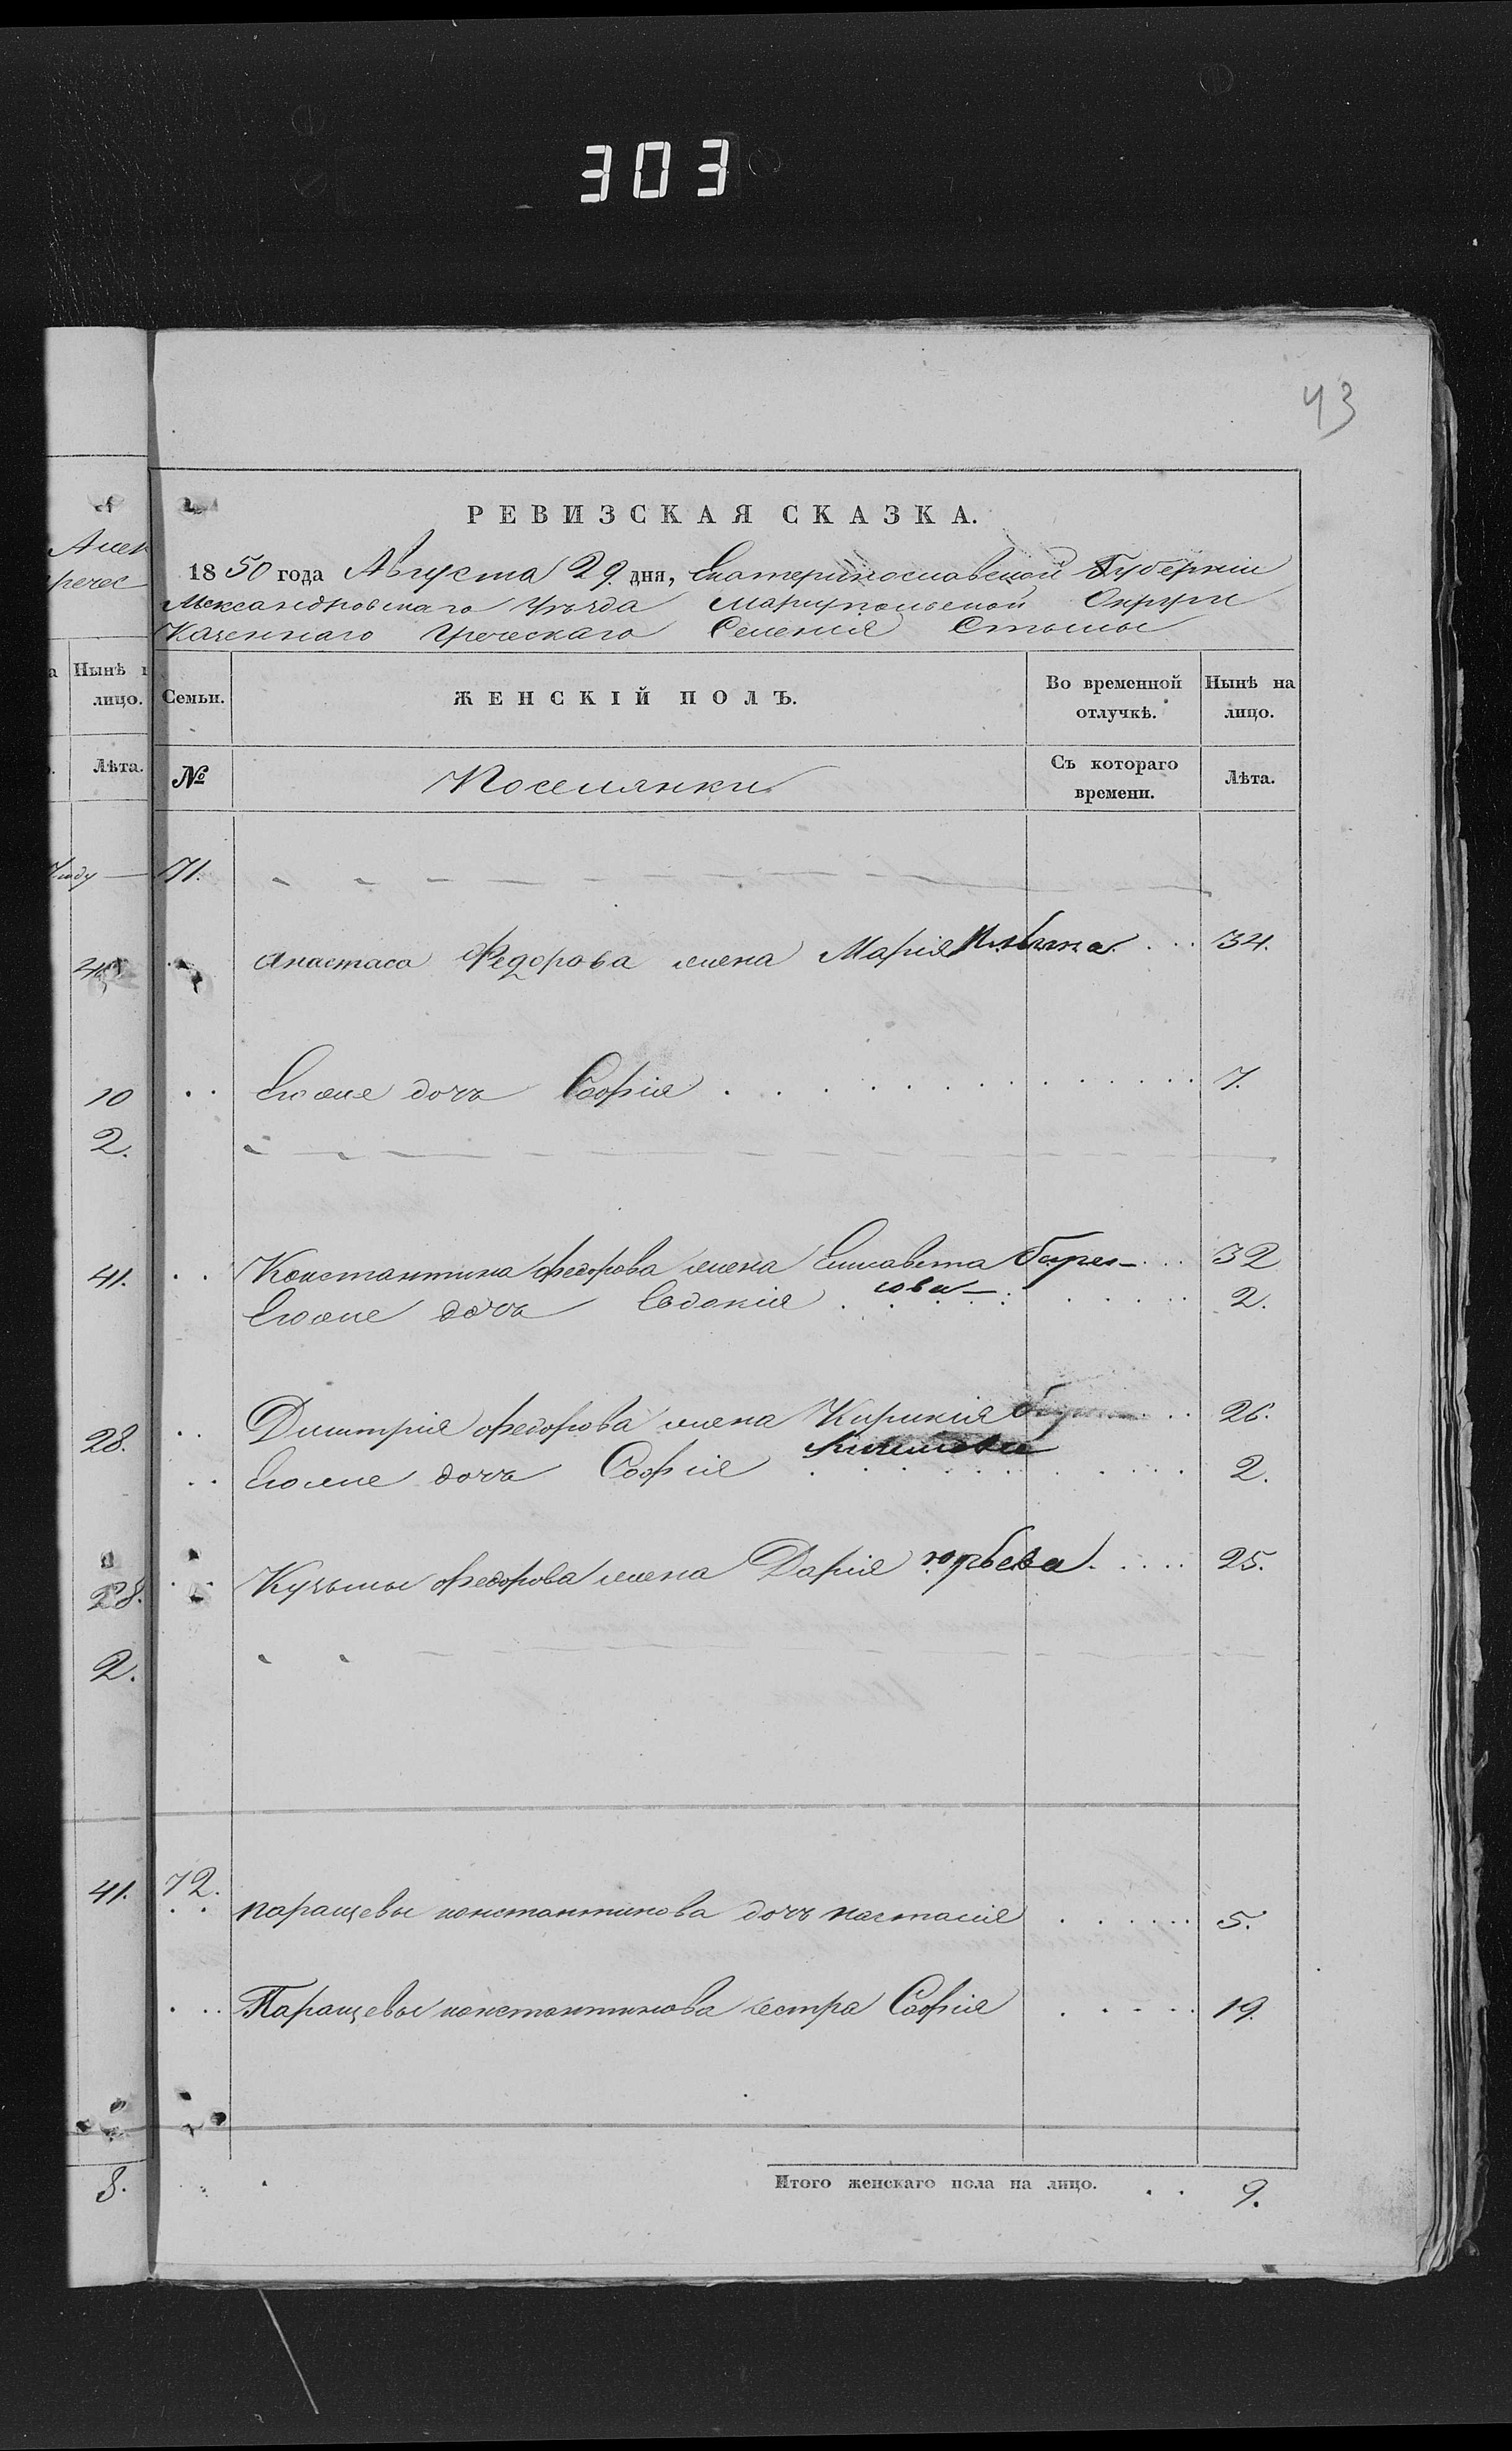 303
43
РЕВИЗСКАЯ СКАЗКА.
1850 года Августа 29. дня, Екатеринославской Губерніи
Александровскаго Уѣзда Маріупольской Округи
Казеннаго Греческаго Селенія Стылы
Нынѣ
лицо.
Лѣта.
Семьи.
ЖЕНСКІЙ ПОЛЪ.
Во временной отлучкѣ.
Нынѣ на лицо.
№
Поселянки
Съ котораго времени.
Лѣта.
71.
Анастаса Федорова жена Марія Ильина 34.
10 Егоже дочь Софія 7.
2.
41. Константина Федорова жена Елисавета Бирлы-
Егоже дочь Евдокія 2.
32
28. Димитрія Федорова жена Кирикія 26.
Егоже дочь Софія 2.
28. Кузьмы Федорова жена Дарія Юрьева 25.
2.
41. 72.
Паращевы Константинова дочь Настасія 5.
Паращевы Константинова сестра Софія 19.
8.
Итого женскаго пола на лицо. 9.